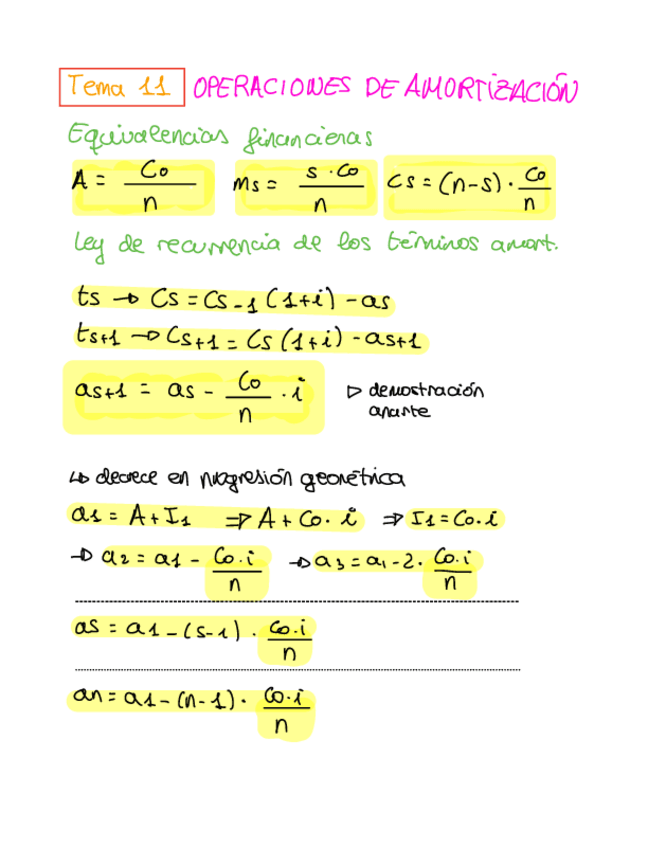 Tema 11 OPERACIONES DE AMORTIZACIÓN
Equivalencias financieras
A = Co/n   Ms = s · Co/n   Cs = (n-s) · Co/n
Ley de recurrencia de los términos amort.
ts → Cs = Cs-1 (1+i) - as
ts+1 → Cs+1 = Cs (1+i) - as+1
as+1 = as - Co/n · i   ▷ demostración
aparte
↳ decrece en progresión geométrica
a1 = A + I1 ⇒ A + Co · i ⇒ I1 = Co · i
→ a2 = a1 - Co·i/n   → a3 = a1 - 2 · Co·i/n
as = a1 - (s-1) · Co·i/n
an = a1 - (n-1) · Co·i/n